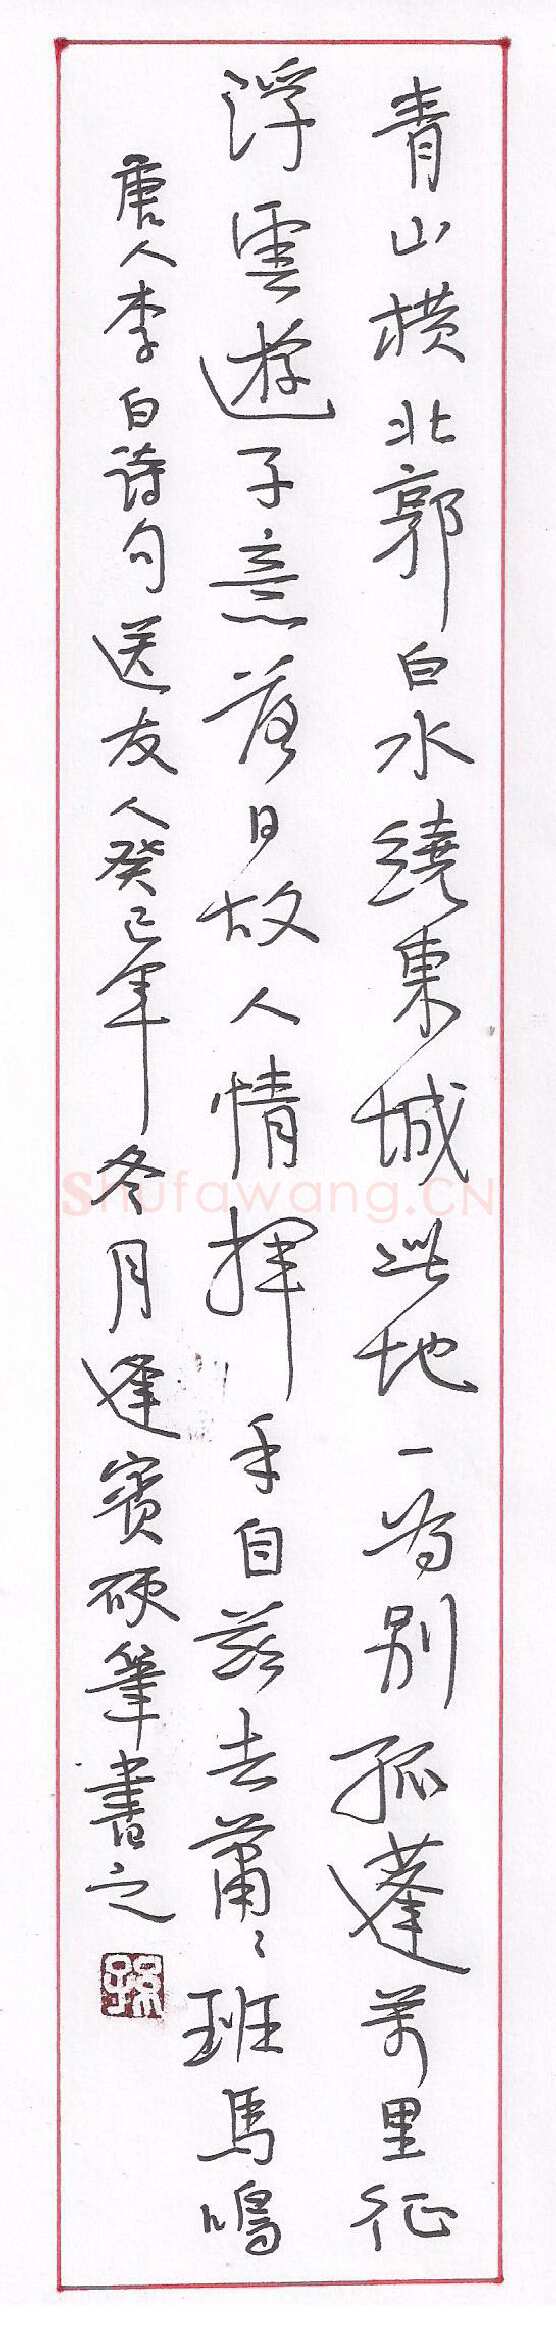 青山横北郭白水繞東城此地一為别孤蓬萬里征
浮雲遊子意落日故人情揮手自兹去蕭〻班馬鳴
唐人李白詩句送友人癸巳年冬月逢賓硬筆書之
Shufawang.CN